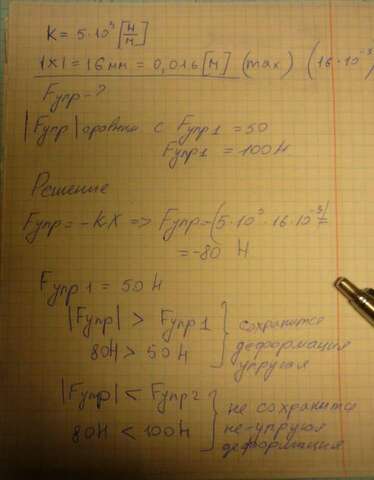 K = 5·10³ [Н/м]
|x| = 16 мм = 0,016 [м] (max) (16·10⁻³)
Fупр - ?
|Fупр| сравни с Fупр1 = 50
Fупр1 = 100 Н
Решение
Fупр = -k·x => Fупр = -(5·10³·16·10⁻³) =
= -80 Н
Fупр1 = 50 Н
|Fупр| > Fупр1 } сохранится
80Н > 50 Н } деформация
упругая
|Fупр| < Fупр2 } не сохранится
80Н < 100Н } не-упругая
деформация